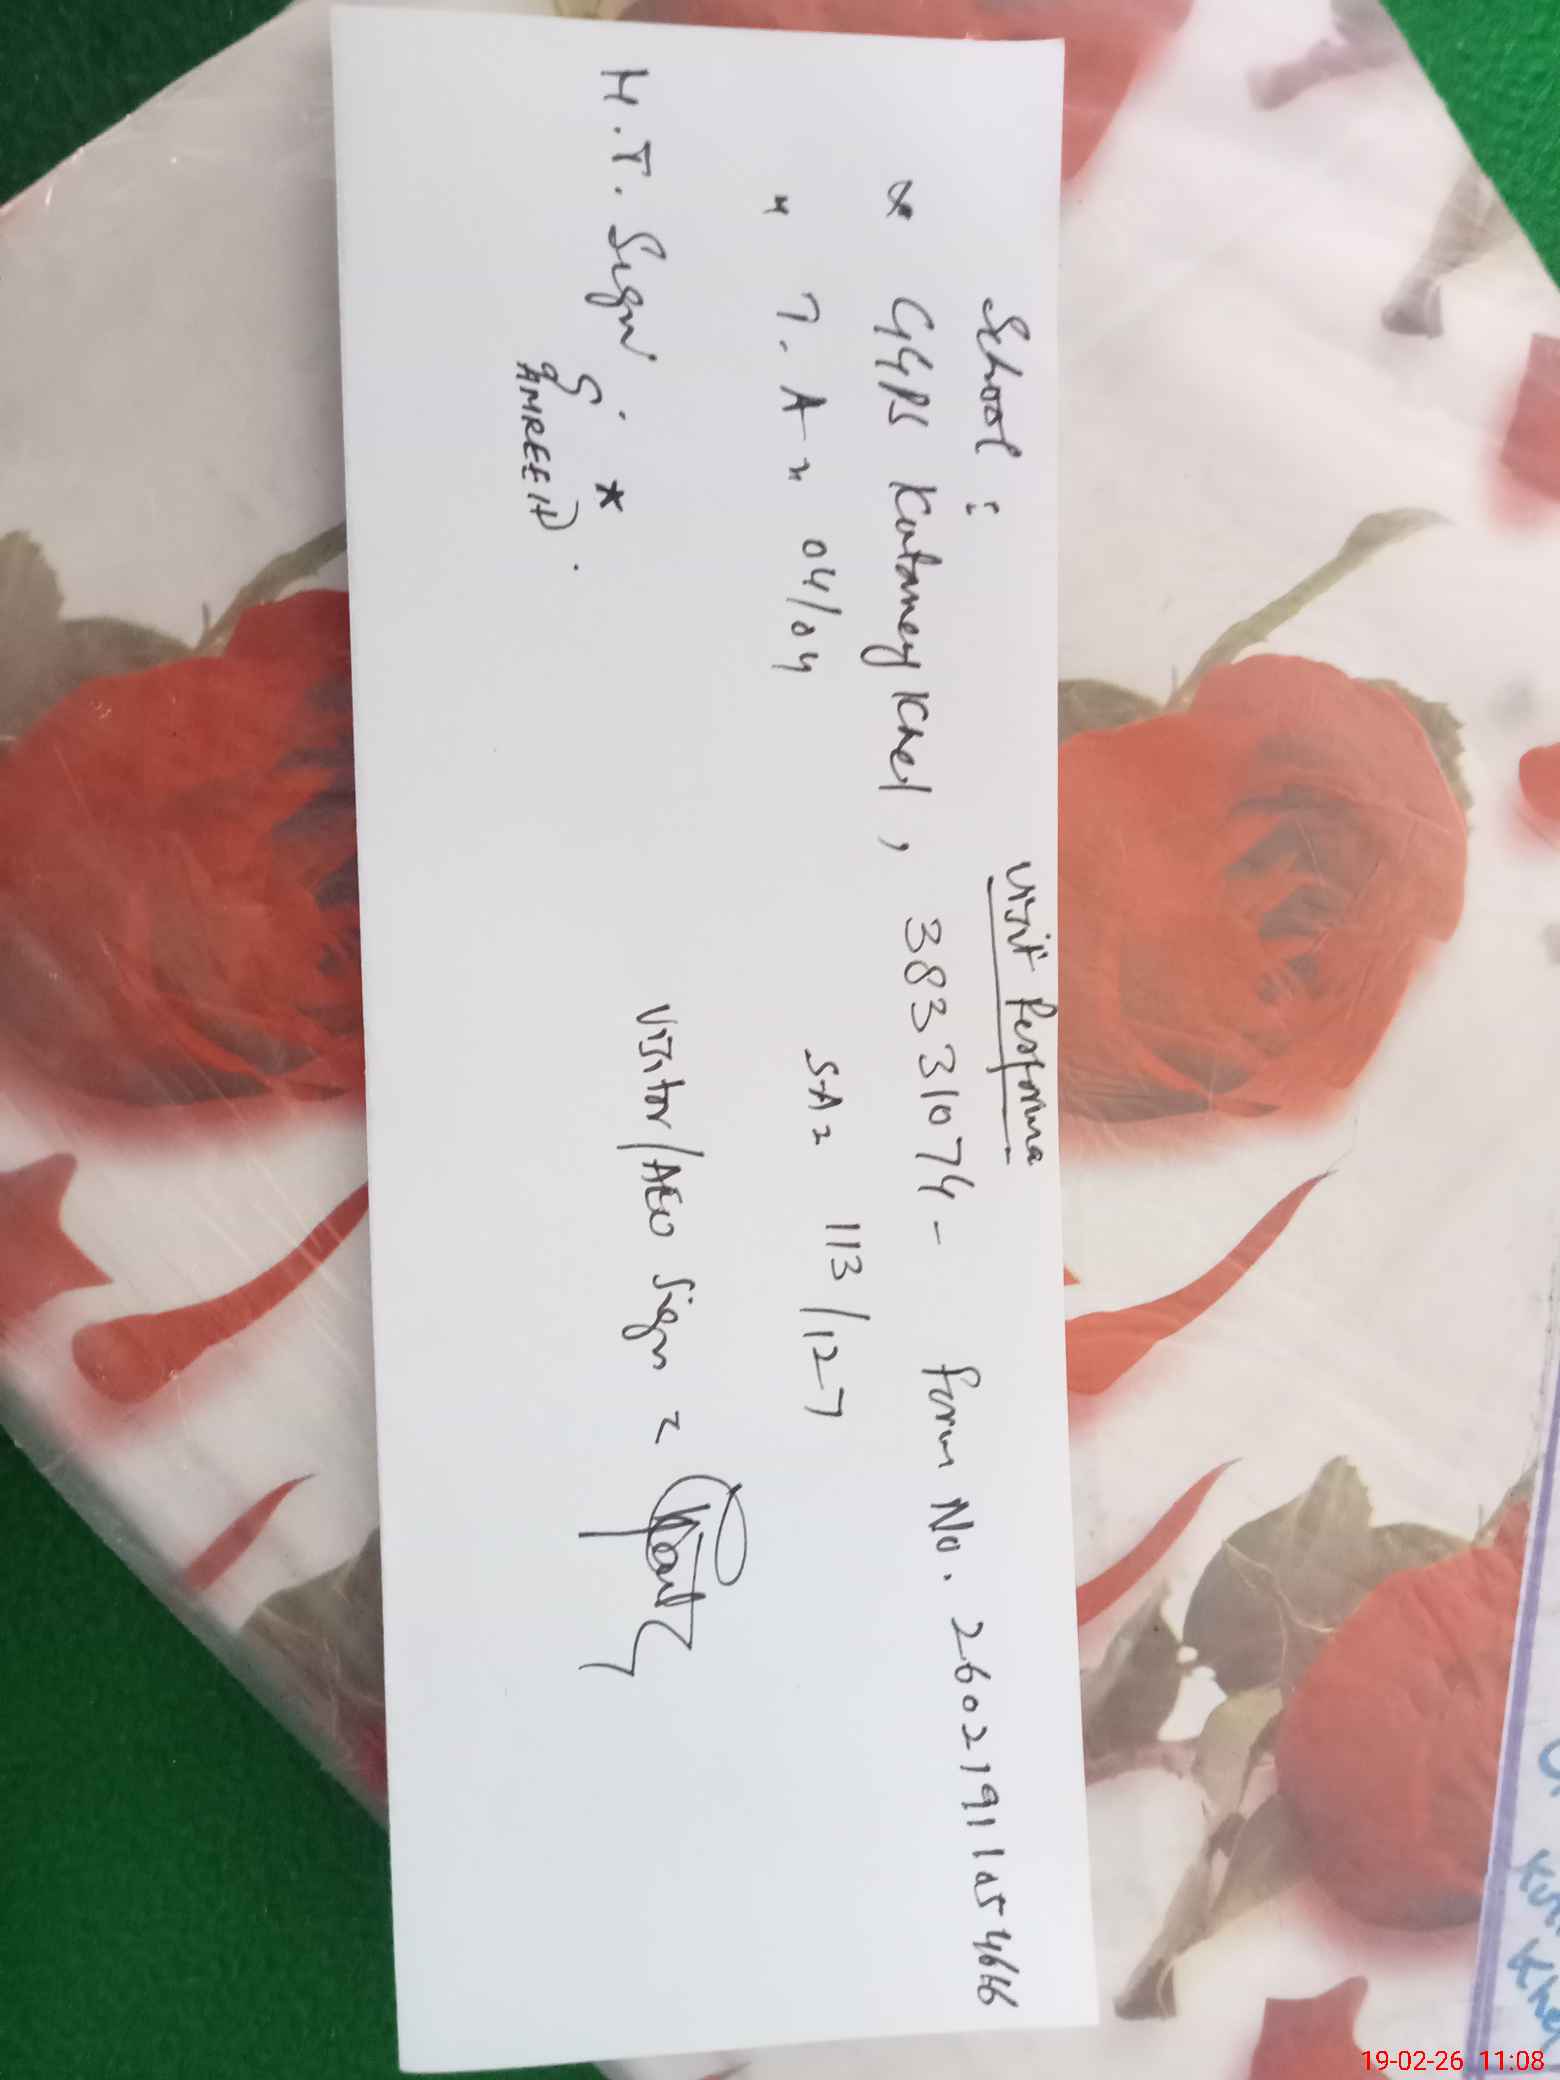 Visit Performa
School :
* GGPS Kataney Khel, 38331074 - Form No. 26021911054646
* T.A = 04/04 SA = 113/127
H.T. Sign : Visitor/AEO Sign =
AMREEN
19-02-26 11:08